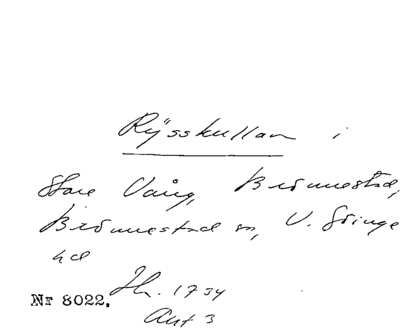 Rÿsskullan i
Stare Vång, Brönnestad,
Brönnestad sn, V. Göinge
hd
Nr 8022. Jh. 1734
Akt 3